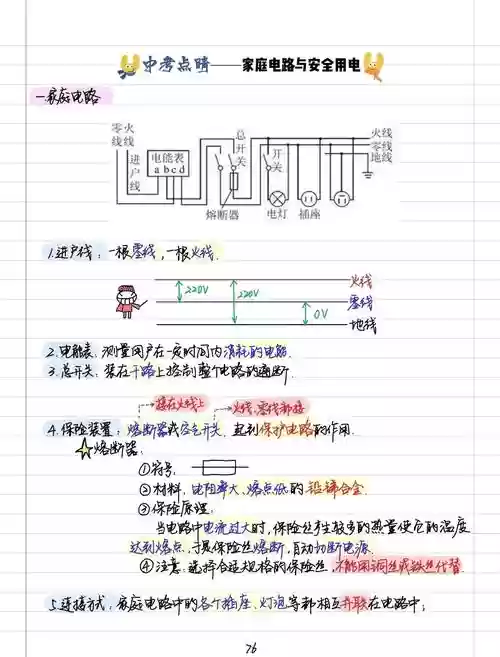 中考点睛——家庭电路与安全用电
一.家庭电路
零线 火线
进户线
电能表
a b c d
总开关
熔断器
开关
电灯
插座
火线
零线
地线
1.进户线：一根零线，一根火线.
220V
220V
0V
火线
零线
地线
2.电能表：测量用户在一定时间内消耗的电能.
3.总开关：装在干路上控制整个电路的通断.
接在火线上
火线、零线都接
4.保险装置：熔断器或空气开关，起到保护电路的作用.
熔断器：
①符号：
②材料：电阻率大、熔点低的铅锑合金.
③保险原理：
当电路中电流过大时，保险丝产生较多的热量使它的温度
达到熔点，于是保险丝熔断，自动切断电源.
④注意：选择合适规格的保险丝，不能用铜丝或铁丝代替.
5.连接方式：家庭电路中的各个插座、灯泡等都相互并联在电路中；
76